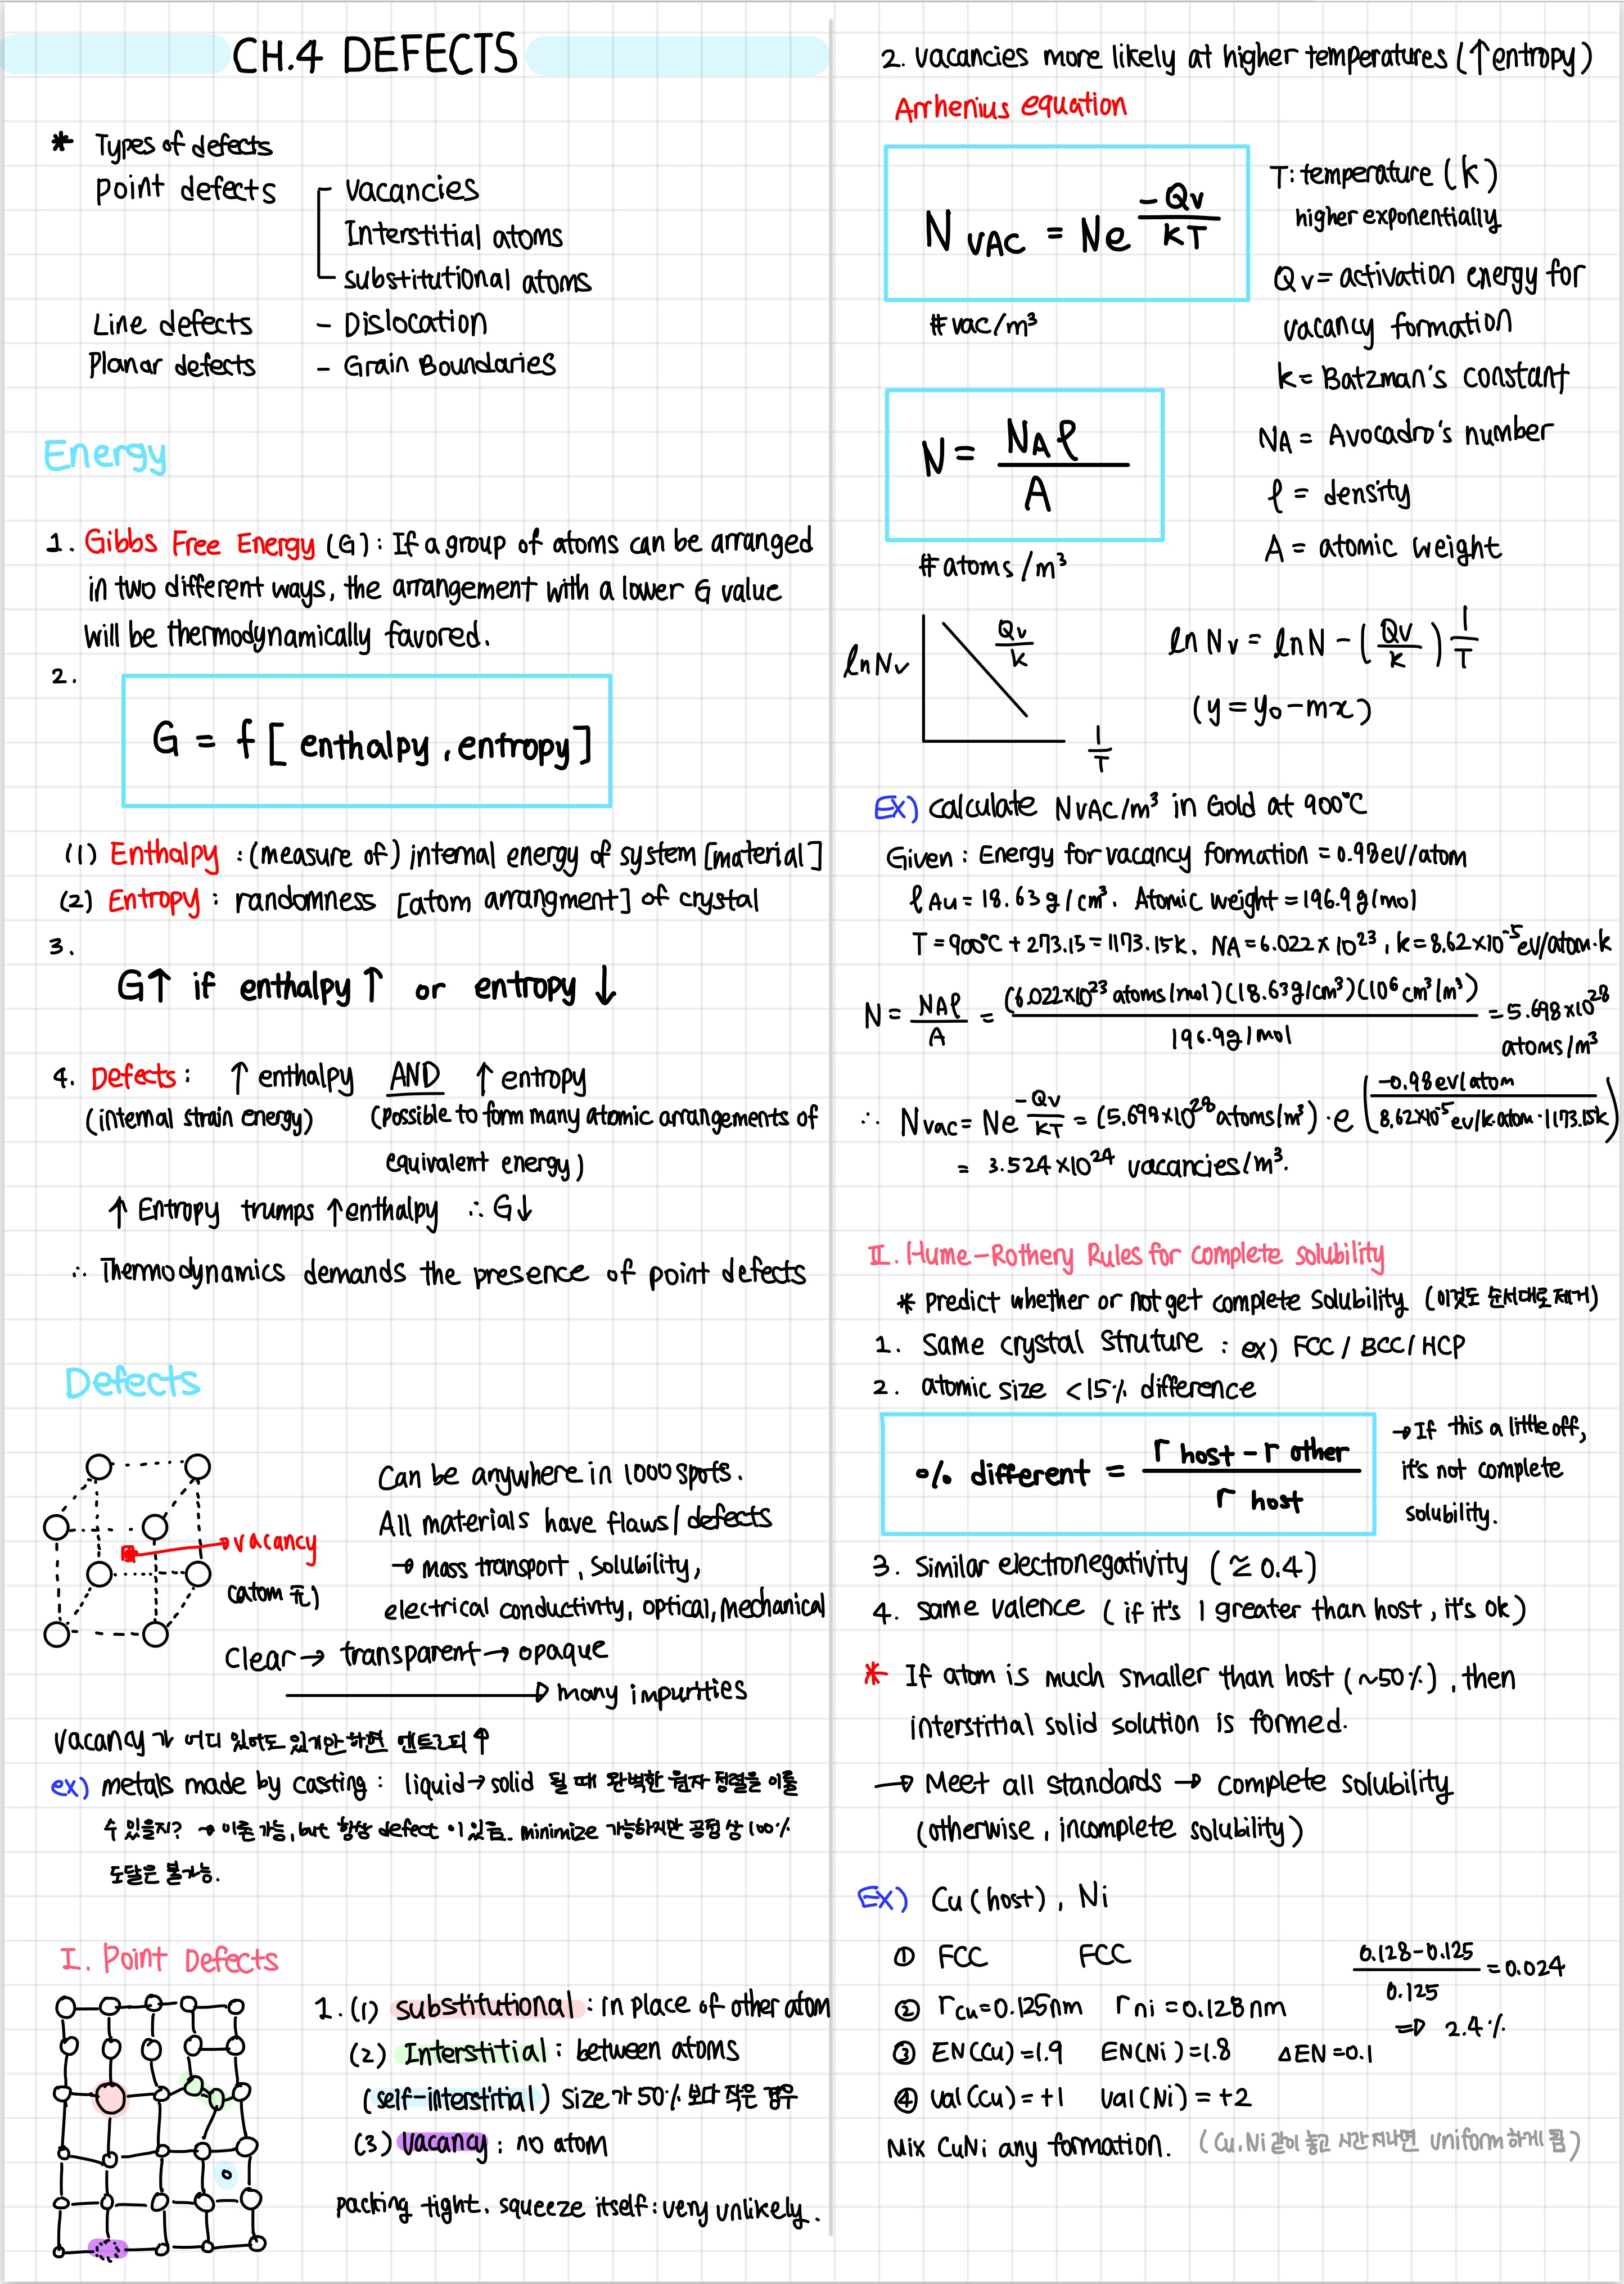 CH.4 DEFECTS
* Types of defects
point defects
Vacancies
Interstitial atoms
substitutional atoms
Line defects - Dislocation
Planar defects - Grain Boundaries
Energy
1. Gibbs Free Energy (G) : If a group of atoms can be arranged
in two different ways, the arrangement with a lower G value
will be thermodynamically favored.
2.
G = f [ enthalpy , entropy ]
(1) Enthalpy : (measure of) internal energy of system [material]
(2) Entropy : randomness [atom arrangment] of crystal
3.
G↑ if enthalpy ↑ or entropy ↓
4. Defects : ↑ enthalpy AND ↑ entropy
(internal strain energy) (possible to form many atomic arrangements of
equivalent energy)
↑ Entropy trumps ↑ enthalpy ∴ G↓
∴ Thermodynamics demands the presence of point defects
Defects
Can be anywhere in 1000 spots.
All materials have flaws/defects
→ mass transport, solubility,
electrical conductivity, optical, mechanical
vacancy
(atom 無)
Clear → transparent → opaque
→ many impurtties
vacancy가 어디 있어도 있기만 하면 엔트로피 ↑
ex) metals made by casting : liquid → solid 될 때 완벽한 원자 정렬을 이룰
수 있을지? → 이론 가능, but 항상 defect 이 있음. minimize 가능하지만 공정 상 100%
도달은 불가능.
I. Point Defects
1. (1) substitutional : in place of other atom
(2) Interstitial : between atoms
(self-interstitial) size가 50% 보다 작은 경우
(3) Vacancy : no atom
packing tight. squeeze itself : very unlikely.
2. vacancies more likely at higher temperatures (↑entropy)
Arrhenius equation
N VAC = Ne^(-Qv/kT)
# vac/m³
T: temperature (k)
higher exponentially
Qv = activation energy for
vacancy formation
k = Batzman's constant
N = NAρ/A
# atoms/m³
NA = Avocadro's number
ρ = density
A = atomic weight
ln Nv
Qv/k
1/T
ln Nv = ln N - (Qv/k) 1/T
(y = y₀ - mx)
EX) calculate NVAC/m³ in Gold at 900°C
Given : Energy for vacancy formation = 0.98 eV/atom
ρAu = 18.63 g/cm³. Atomic weight = 196.9 g/mol
T = 900°C + 273.15 = 1173.15k. NA = 6.022×10²³, k = 8.62×10⁻⁵ eV/atom·k
N = NAρ/A = (6.022×10²³ atoms/mol)(18.63g/cm³)(10⁶ cm³/m³) / 196.9g/mol = 5.698×10²⁸
atoms/m³
∴ Nvac = Ne^(-Qv/kT) = (5.698×10²⁸ atoms/m³) · e^(-0.98 ev/atom / 8.62×10⁻⁵ ev/k·atom · 1173.15k)
= 3.524×10²⁴ vacancies/m³.
II. Hume-Rothery Rules for complete solubility
* predict whether or not get complete solubility (이것도 순서대로 제거)
1. Same crystal struture : ex) FCC / BCC / HCP
2. atomic size <15% difference
% different = r host - r other / r host
→ If this a little off,
it's not complete
solubility.
3. Similar electronegativity (≊ 0.4)
4. same valence (if it's 1 greater than host, it's ok)
* If atom is much smaller than host (~50%), then
interstitial solid solution is formed.
→ Meet all standards → complete solubility
(otherwise, incomplete solubility)
EX) Cu (host), Ni
① FCC FCC
② rcu = 0.125nm rni = 0.128nm
0.128-0.125 / 0.125 = 0.024
⇒ 2.4%
③ EN(Cu) = 1.9 EN(Ni) = 1.8 ΔEN = 0.1
④ val(Cu) = +1 val(Ni) = +2
Mix CuNi any formation. (Cu, Ni 같이 놓고 시간 지나면 uniform하게 됨)